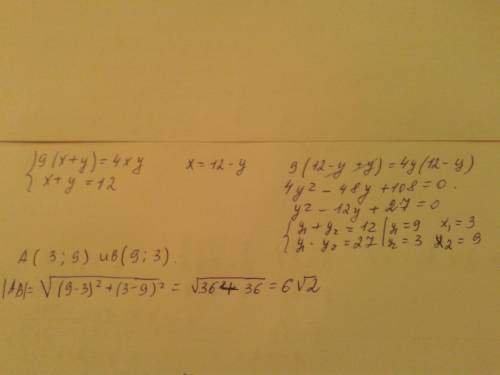 { 9(x+y)=4xy
{ x+y=12
x=12-y
9(12-y+y)=4y(12-y)
4y²-48y+108=0.
y²-12y+27=0
{ y₁+y₂=12 | y₁=9 x₁=3
{ y₁·y₂=27 | y₂=3 x₂=9
A(3;9) и B(9;3).
|AB|=√((9-3)²+(3-9)²) = √(36+36) = 6√2